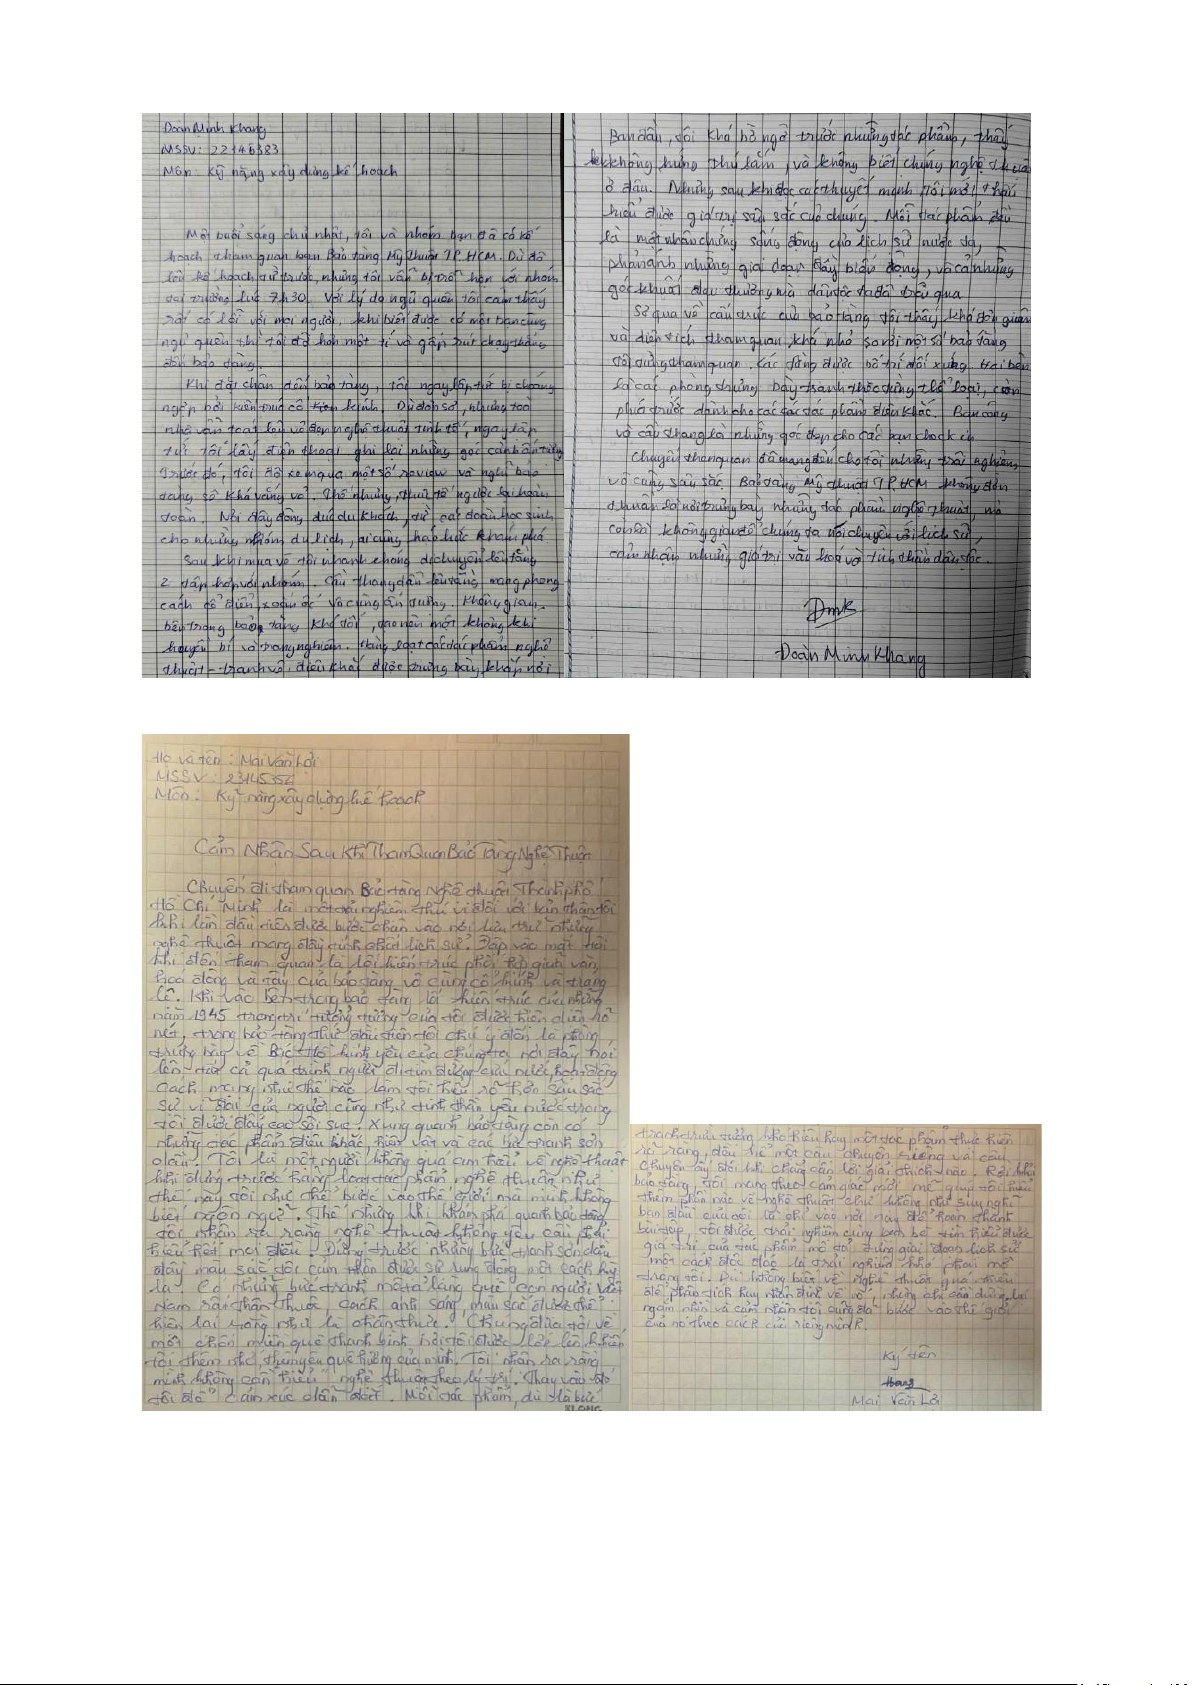 Đoàn Minh Khang
MSSV: 22146383
Môn: Kỹ năng xây dựng kế hoạch
Một buổi sáng chủ nhật, tôi và nhóm bạn đã có kế
hoạch tham quan bạn Bảo tàng Mỹ thuật TP.HCM. Dù đã
lên kế hoạch từ trước, nhưng tôi vẫn bị trễ hẹn với nhóm
tại trường lúc 7h30. Với lý do ngủ quên tôi cảm thấy
rất có lỗi với mọi người, khi biết được có một bạn cũng
ngủ quên thì tôi đỡ hơn một tí và gấp rút chạy thẳng
đến bảo tàng.
Khi đặt chân đến bảo tàng, tôi ngay lập tức bị choáng
ngợp bởi kiến trúc cổ kính. Dù đơn sơ, nhưng toà
nhà vẫn toát lên vẻ đẹp nghệ thuật tinh tế, ngay lập
tức tôi lấy điện thoại ghi lại những góc cảnh ấn tượng
Trước đó, tôi đã xem qua một số review và nghĩ bảo
tàng sẽ khá vắng vẻ. Thế nhưng, thực tế ngược lại hoàn
toàn. Nơi đây đông đúc du khách, từ các đoàn học sinh
cho những nhóm du lịch, ai cũng háo hức khám phá
Sau khi mua vé tôi nhanh chóng di chuyển lên tầng
2 tập hợp với nhóm. Cầu thang dẫn lên tầng mang phong
cách cổ điển, xoắn ốc vô cùng ấn tượng. Không gian
bên trong bảo tàng khá tối, tạo nên một không khí
huyền bí và trang nghiêm. Hàng loạt các tác phẩm nghệ
thuật - tranh vẽ, điêu khắc được trưng bày khắp nơi
Ban đầu, tôi khá bỡ ngỡ trước những tác phẩm, thấy
không hứng thú lắm, và không biết chúng nghệ thuật
ở đâu. Nhưng sau khi đọc các thuyết minh tôi mới thấu
hiểu được giá trị sâu sắc của chúng. Mỗi tác phẩm đều
là một nhân chứng sống động của lịch sử nước ta,
phản ánh những giai đoạn đầy biến động, và cả những
góc khuất đau thương mà dân tộc ta đã trải qua
Sơ qua về cấu trúc của bảo tàng tôi thấy khá đơn giản
và diện tích tham quan khá nhỏ so với một số bảo tàng
tôi từng tham quan. Các tầng được bố trí đối xứng. Hai bên
là các phòng trưng bày tranh theo từng thể loại, còn
phía trước dành cho các tác phẩm điêu khắc. Ban công
và cầu thang là những góc đẹp cho các bạn check in
Chuyến tham quan đã mang đến cho tôi những trải nghiệm
vô cùng sâu sắc. Bảo tàng Mỹ thuật TP.HCM không đơn
thuần là nơi trưng bày những tác phẩm nghệ thuật, mà
còn là không gian để chúng ta nói chuyện với lịch sử,
cảm nhận những giá trị văn hoá và tinh thần dân tộc.
Dmk
Đoàn Minh Khang
Họ và tên: Mai Văn Lợi
MSSV: 23145356
Môn: Kỹ năng xây dựng kế hoạch
Cảm Nhận Sau Khi Tham Quan Bảo Tàng Nghệ Thuật
Chuyến đi tham quan Bảo tàng Nghệ thuật Thành phố
Hồ Chí Minh là một trải nghiệm thú vị đối với bản thân tôi
khi lần đầu tiên được bước chân vào nơi lưu trữ những
nghệ thuật mang đậm tính chất lịch sử. Đập vào mắt tôi
khi đến tham quan là lối kiến trúc phối hợp giữa văn
hoá đông và tây của bảo tàng vô cùng cổ kính và tráng
lệ. Khi vào bên trong bảo tàng lối kiến trúc của những
năm 1945 trong trí tưởng tượng của tôi được hiện diện rõ
nét, trong bảo tàng thứ đầu tiên tôi chú ý đến là phòng
trưng bày về Bác Hồ kính yêu của chúng ta nơi đây nói
lên tất cả quá trình người đi tìm đường cứu nước, hoạt động
cách mạng như thế nào làm tôi hiểu rõ hơn sâu sắc
sự vĩ đại của người cũng như tinh thần yêu nước trong
tôi được đẩy cao sôi sục. Xung quanh bảo tàng còn có
những tác phẩm điêu khắc, hiện vật và các bức tranh sơn
dầu. Tôi là một người không quá am hiểu về nghệ thuật
khi đứng trước hàng loạt tác phẩm nghệ thuật như
thế này tôi như thể bước vào thế giới mà mình không
biết ngôn ngữ. Thế nhưng khi khám phá quanh bảo tàng
tôi nhận ra rằng nghệ thuật không yêu cầu phải
hiểu hết mọi điều. Đứng trước những bức tranh sơn dầu
đầy màu sắc tôi cảm nhận được sự rung động một cách kỳ
lạ. Có những bức tranh mô tả làng quê con người Việt
Nam rất thân thuộc, cách ánh sáng màu sắc được thể
hiện lại giống như là chân thực. Chúng đưa tôi về
một chốn miền quê thanh bình nơi tôi được lớn lên khiến
tôi thêm nhớ, thêm yêu quê hương của mình. Tôi nhận ra rằng
mình không cần hiểu nghệ thuật theo lý trí. Thay vào đó
tôi để cảm xúc dẫn dắt. Mỗi tác phẩm, dù là bức
tranh trừu tượng khó hiểu hay một tác phẩm thực hiện
rõ ràng, đều kể một câu chuyện riêng và câu
chuyện ấy đôi khi chẳng cần lời giải thích nào. Rời khỏi
bảo tàng, tôi mang theo cảm giác mới mẻ giúp tôi hiểu
thêm phần nào về nghệ thuật chứ không như suy nghĩ
ban đầu của tôi là chỉ vào nơi này để hoàn thành
bài tập, tôi được trải nghiệm cùng bạn bè tìm hiểu được
giá trị của tác phẩm mô tả từng giai đoạn lịch sử
một cách độc đáo là trải nghiệm khó phai mờ
trong tôi. Dù không biết về nghệ thuật quá nhiều
để phân tích hay nhận định về nó, nhưng chỉ cần dừng lại
ngắm nhìn và cảm nhận tôi cũng đã bước vào thế giới
của nó theo cách của riêng mình.
Ký tên
Mai Văn Lợi